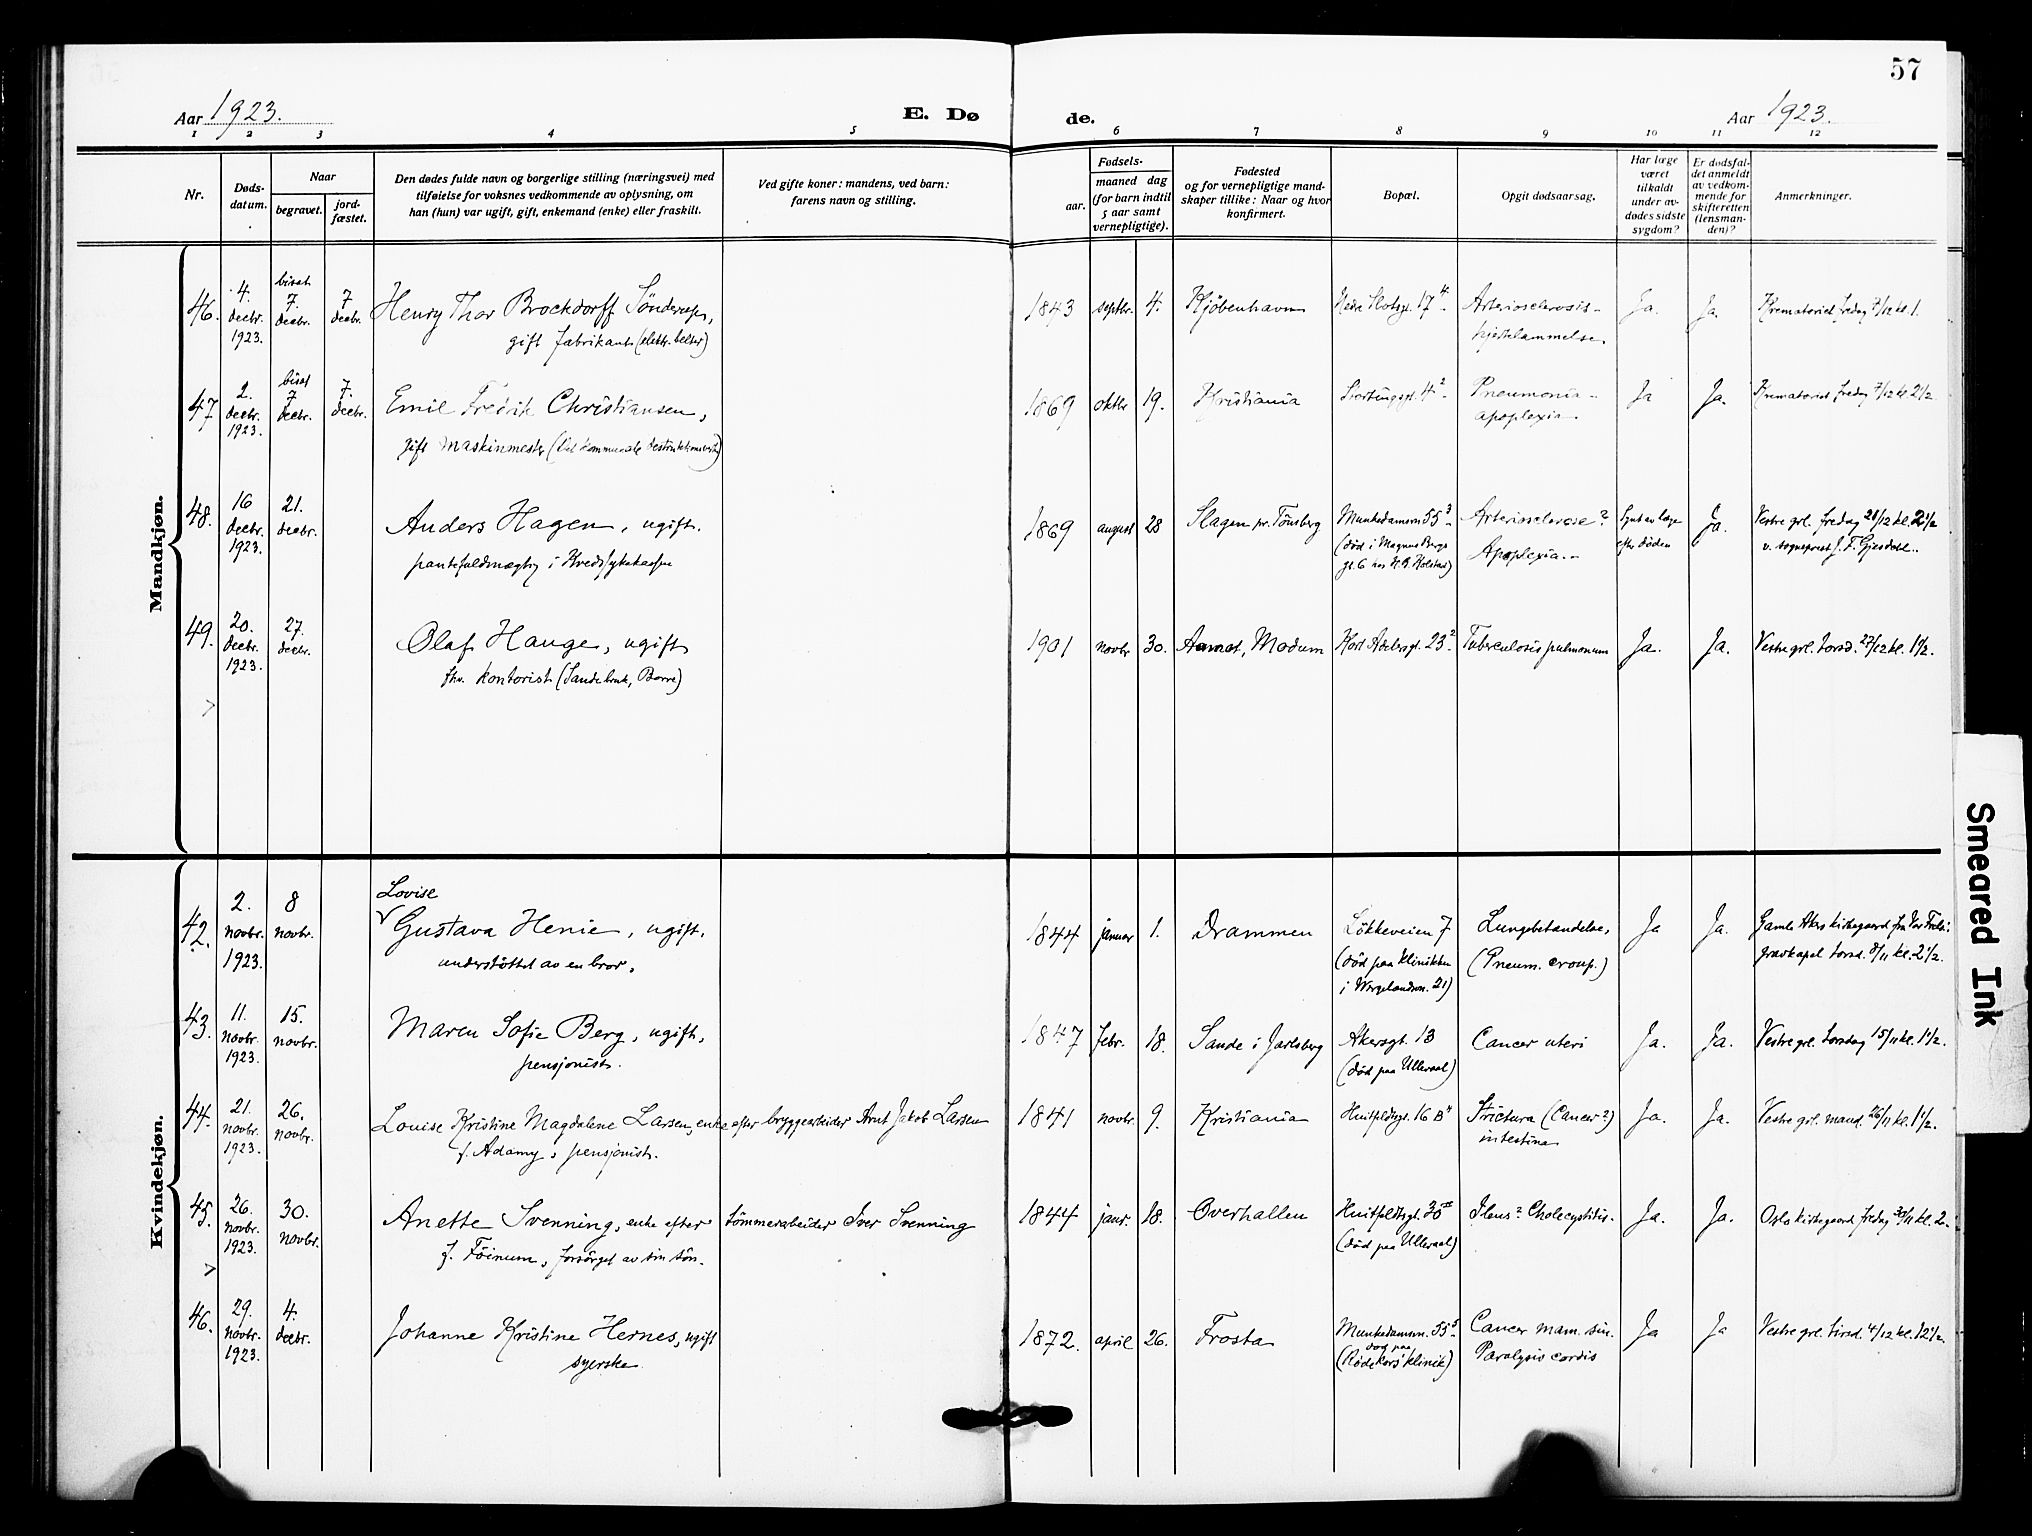 57
Aar 1923.
E. Dø de.
Aar 1923.
1 2 3 4 5 6 7 8 9 10 11 12
Nr.
Døds-
datum.
Naar
begravet.
jord-
fæstet.
Den dødes fulde navn og borgerlige stilling (næringsvei) med
tilføielse for voksnes vedkommende av oplysning, om
han (hun) var ugift, gift, enkemand (enke) eller fraskilt.
Ved gifte koner: mandens, ved barn:
farens navn og stilling.
Fødsels-
aar.
maaned dag
(for barn indtil
5 aar samt
vernepligtige).
Fødested
og for vernepligtige mand-
skaper tillike: Naar og hvor
konfirmert.
Bopæl.
Opgit dødsaarsag.
Har læge
været
tilkaldt
under av-
dødes sidste
sygdom?
Er dødsfal-
det anmeldt
av vedkom-
mende for
skifteretten
(lensman-
den)?
Anmerkninger.
Mandkjøn.
46. 4. decbr. 1923. bisat 7. decbr. 7 decbr.
Henry Thor Brockdorff Sönderup,
gift fabrikant (elektr. belter)
1843 septbr. 4. Kjöbenhavn Nedre Slotsgt. 17 4. Arteriosclerosis-
hjertelammelse.
Ja. Ja. Krematoriet fredag 7/12 kl. 1.
47 2. decbr. 1923. bisat 7 decbr. 7. decbr.
Emil Fredrik Christiansen,
gift maskinmester (det kommunale
1869 oktbr 19. Kristiania Stortingsgt. 4 2. Pneumonia-
apoplexia.
Ja Ja. Krematoriet fredag 7/12 kl. 2 1/2
48. 16 decbr. 1923. 21. decbr.
Anders Hagen, ugift.
pantefuldmægtig i Kredssykekassen
1869 august 28 Slagen pr. Tönsberg Munkedamsvn. 55 3.
(död i Magnus Bergs
gt. 6 hos
Arteriosclerose?
Apoplexia.-
Synt av læge
efter döden
Ja. Vestre grl. fredag 21/12 kl. 2 1/2
v. sogneprest J. F. Gjesdahl..
49. 20. decbr. 1923. 27. decbr.
Olaf Hauge, ugift
fhv. kontorist (Sandebruk, Borre)
1901 novbr 30. Aamot, Modum Kort Adelersgt. 23 2. Tuberculosis pulmonum
Ja. Ja. Vestre grl. torsd. 27/12 kl. 1 1/2.
Kvindekjøn.
42. 2. novbr. 1923. 8 novbr.
Lovise
Gustava Henie, ugift,
understöttet av en bror.
1844 januar 1. Drammen Lökkeveien 7
(död paa klinikken
i Wergelandsvn. 21)
Lungebetændelse,
(Pneum. croup.)
Ja Ja. Gamle Akers kirkegaard fra Vor Frels:
gravkapel torsd. 8/11 kl. 2 1/2.
43. 11. novbr. 1923. 15. novbr.
Maren Sofie Berg, ugift,
pensjonist.
1847 febr. 18. Sande i Jarlsberg Akersgt. 13
(död paa Ulleraal)
Cancer uteri
Ja. Ja. Vestre grl. torsdag 15/11 kl. 1 1/2.
44. 21. novbr. 1923. 26. novbr.
Louise Kristine Magdalene Larsen, enke efter bryggearbeider Arnt Jakob Larsen
f. Adamy, pensjonist.
1841 novbr 9. Kristiania Huitfeldtsgt. 16 B 4 Strictura (Cancer?)
intestina
Ja. Ja. Vestre grl. mand. 26/11 kl. 1 1/2.
45. 26. novbr. 1923. 30. novbr.
Anette Svenning, enke efter tömmerarbeider Iver Svenning
f. Föinum, forsörget av sin sön.
1844 janr. 18. Overhallen Huitfeldtsgt. 30 II
(död paa Ulleraal)
Ileus? Cholecystitis.
Ja. Ja. Oslo kirkegaard fredag 30/11 kl. 2.
46. 29. novbr. 1923. 4. decbr.
Johanne Kristine Hernes, ugift
syerske
1872. april 26. Frosta Munkedamsvn. 55 5.
död paa
(Rödekors' klinik)
Cancer mam. sin.
Paralysis cordis
Ja Ja Vestre grl. tirsd. 4/12 kl. 12 1/2.
Smeared Ink